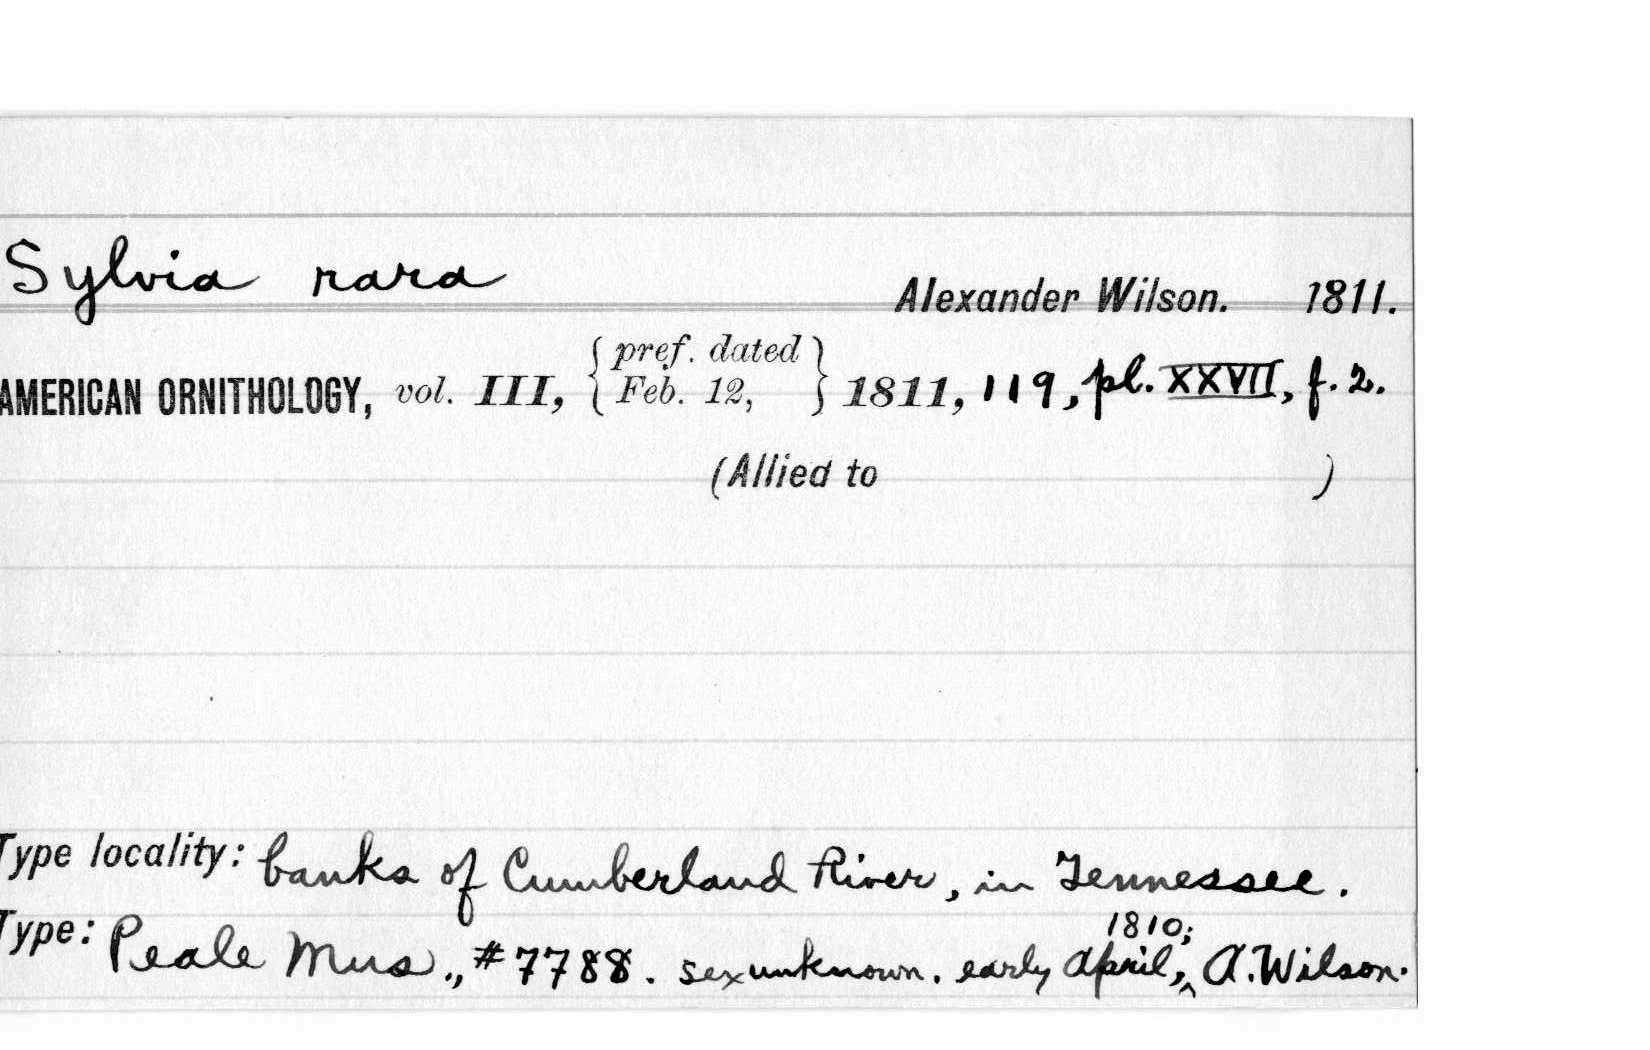 Sylvia rara
Alexander Wilson. 1811.
AMERICAN ORNITHOLOGY, vol. III, { pref. dated Feb. 12, } 1811, 119, pl. XXVII, f. 2.
(Allied to )
Type locality: banks of Cumberland River, in Tennessee.
Type: Peale Mus., #7788. sex unknown. early April, 1810; A. Wilson.